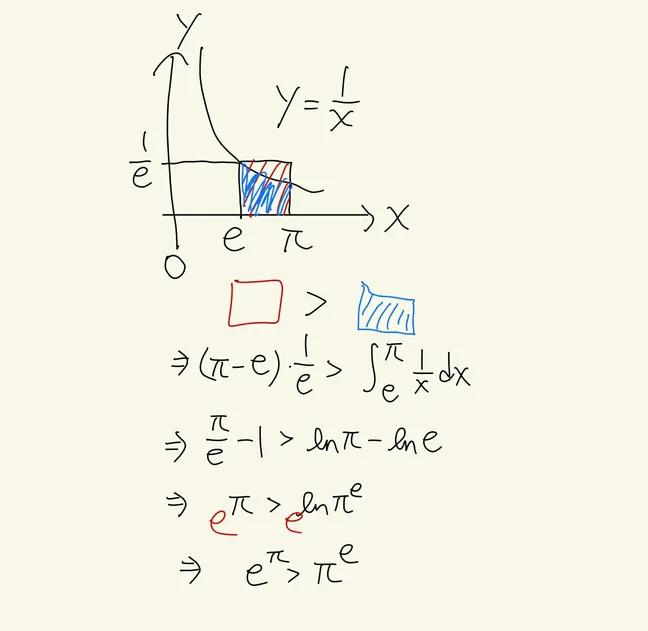 y
y = 1/x
1/e
e π
x
0
□ > ▱
⇒ (π-e)·1/e > ∫_e^π 1/x dx
⇒ π/e -1 > lnπ - lne
⇒ e^π > e^lnπ^e
⇒ e^π > π^e